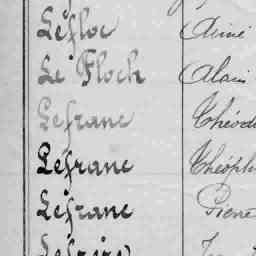 Lefloc Aimé
Le Floch Alain
Lefranc Théod
Lefranc Théoph
Lefranc Pierre